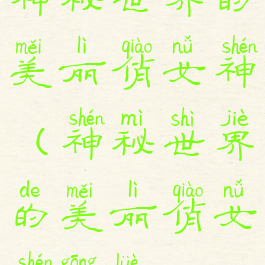 神秘世界的
měi lì qiào nǚ shén
美丽俏女神
shén mì shì jiè
（神秘世界
de měi lì qiào nǚ
的美丽俏女
shén gōng liè